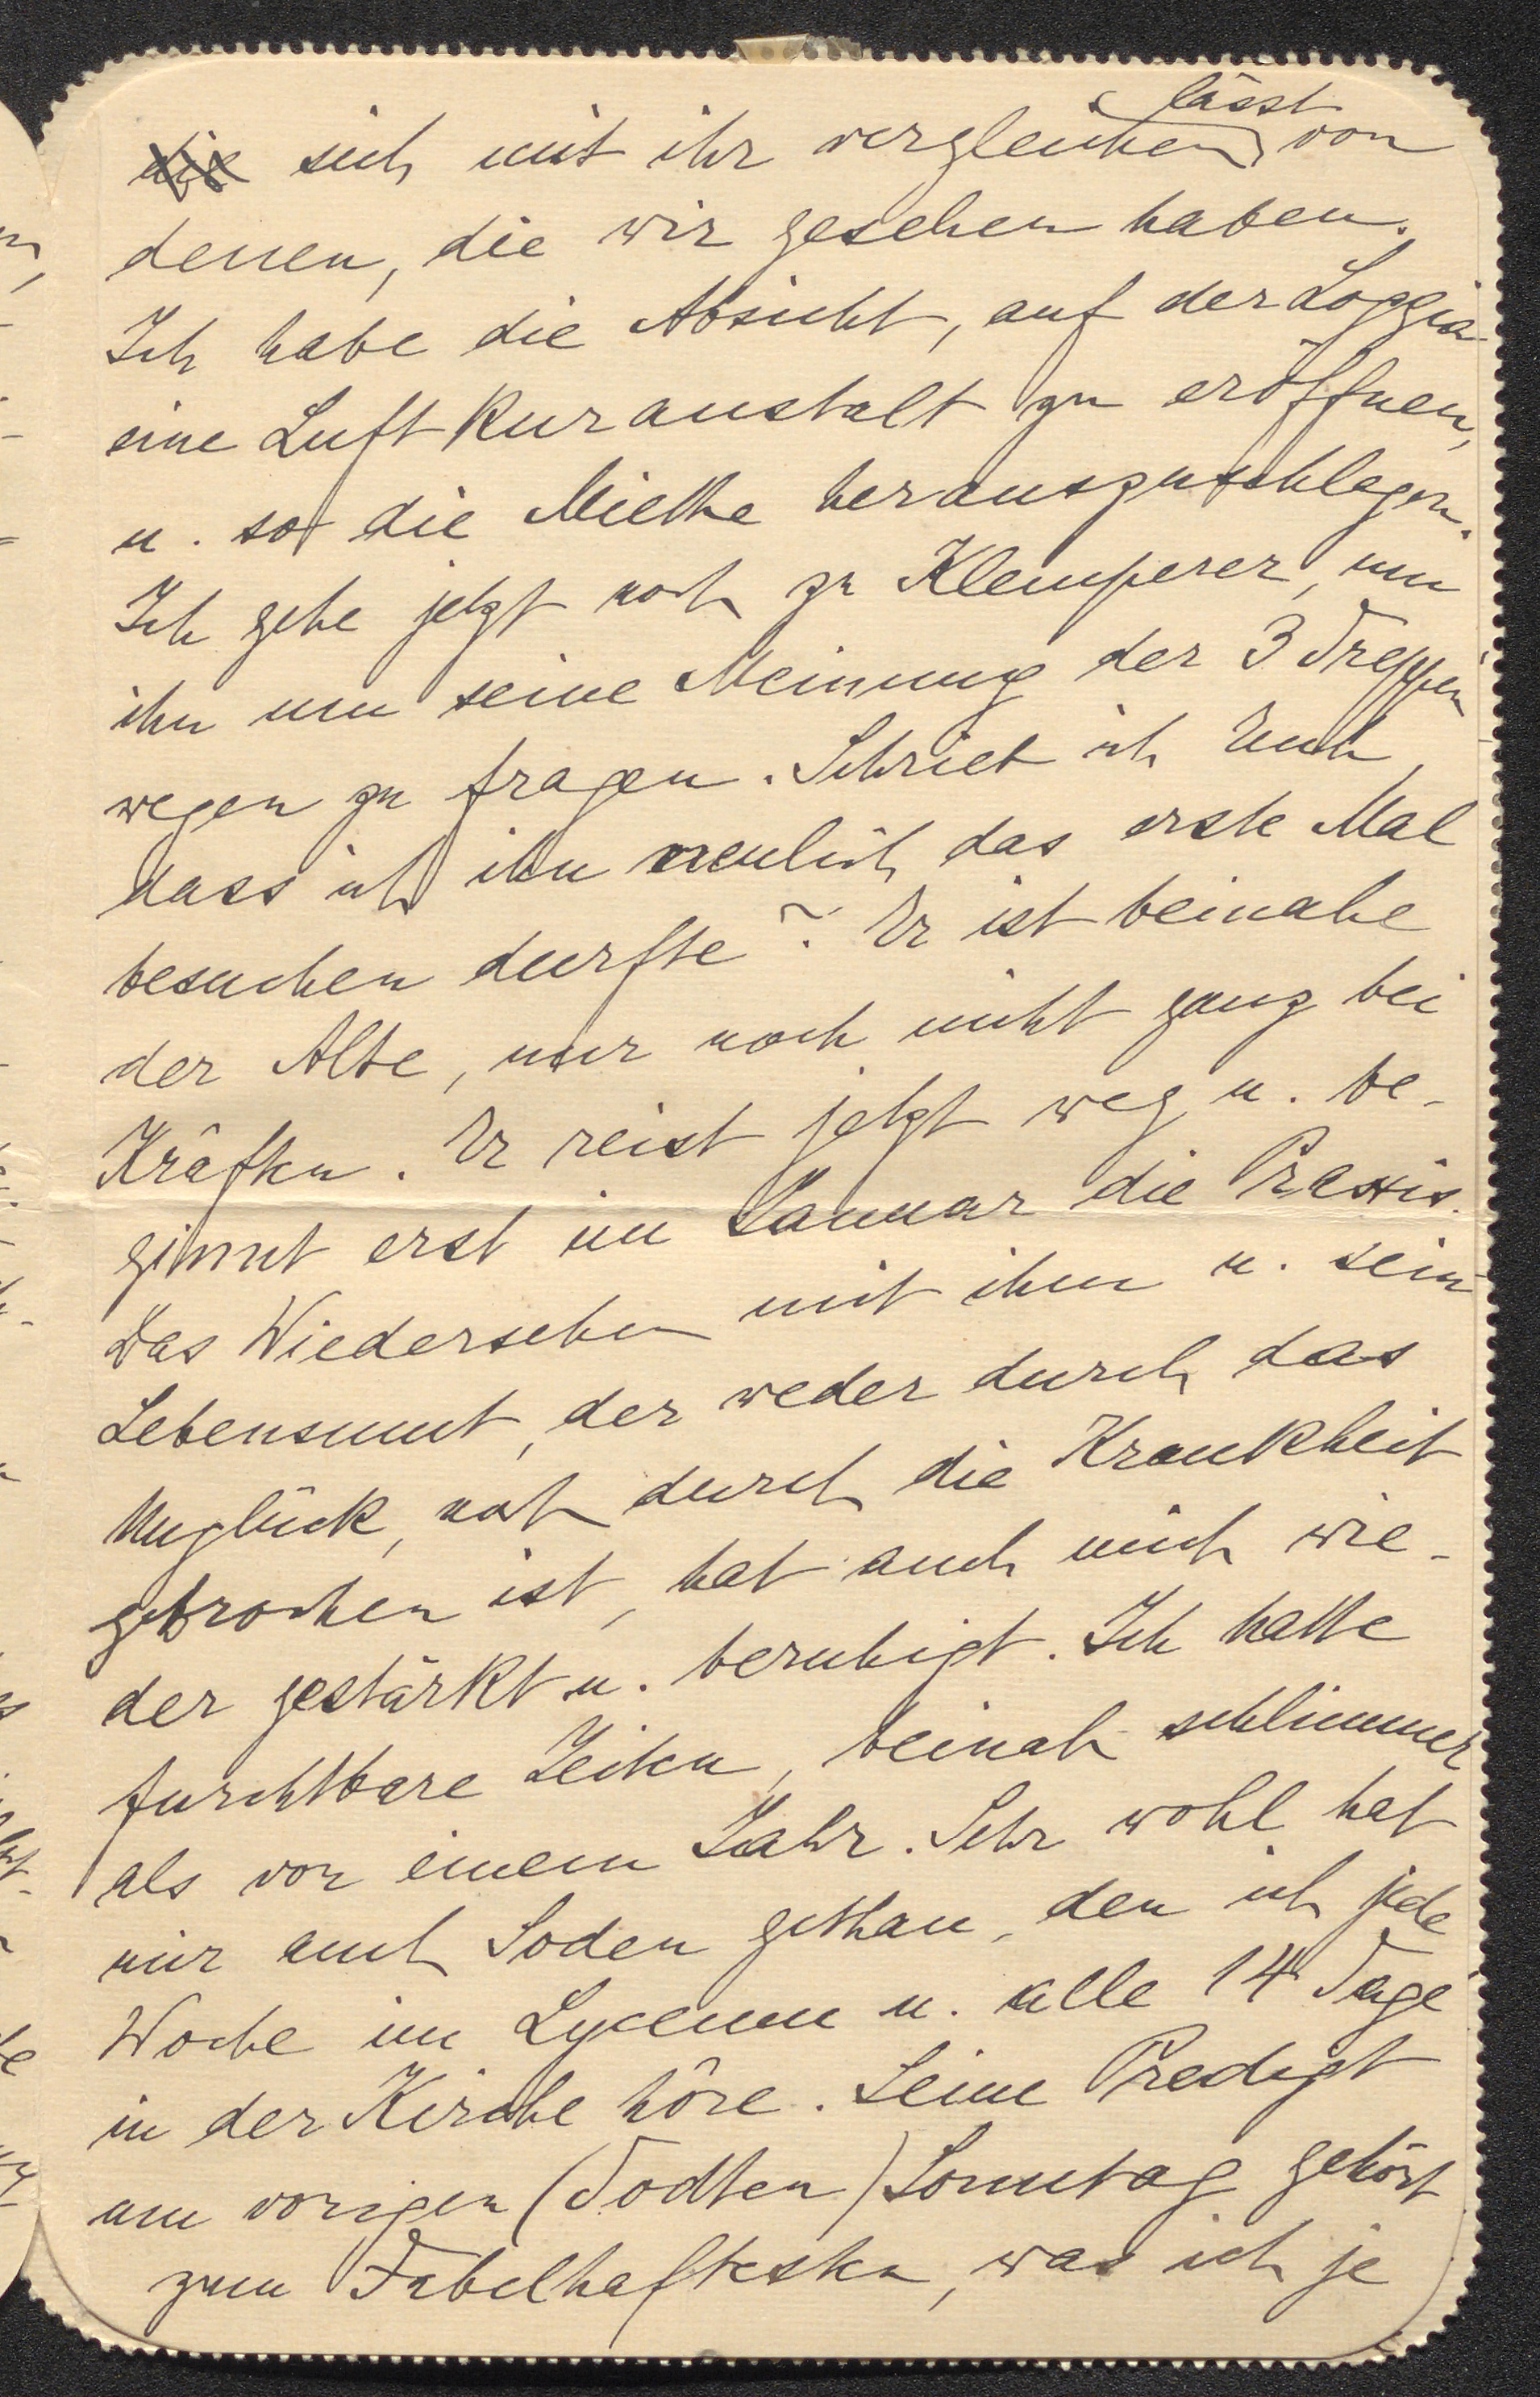 die sich mit ihr vergleichen lässt von
denen, die wir gesehen haben.
Ich habe die Absicht, auf der Loggia
eine Luftkuranstalt zu eröffnen,
u. so die Miethe herauszuschlagen.
Ich gehe jetzt noch zu Klemperer, um
ihn um seine Meinung der 3 Treppen
wegen zu fragen. Schrieb ich Euch,
dass ich ihn neulich das erste Mal
besuchen durfte? Er ist beinahe
der Alte, nur noch nicht ganz bei
Kräften. Er reist jetzt weg u. be-
ginnt erst im Januar die Praxis.
Das Wiedersehen mit ihm u. sein
Lebensmut, der weder durch das
Unglück, noch durch die Krankheit
gebrochen ist, hat auch mich wie-
der gestärkt u. beruhigt. Ich hatte
furchtbare Zeiten, beinah schlimmer
als vor einem Jahr. Sehr wohl hat
mir auch Soden gethan, den ich jede
Woche im Lyceum u. alle 14 Tage
in der Kirche höre. Seine Predigt
am vorigen (Todten) Sonntag gehört
zum Fabelhaftesten, was ich je